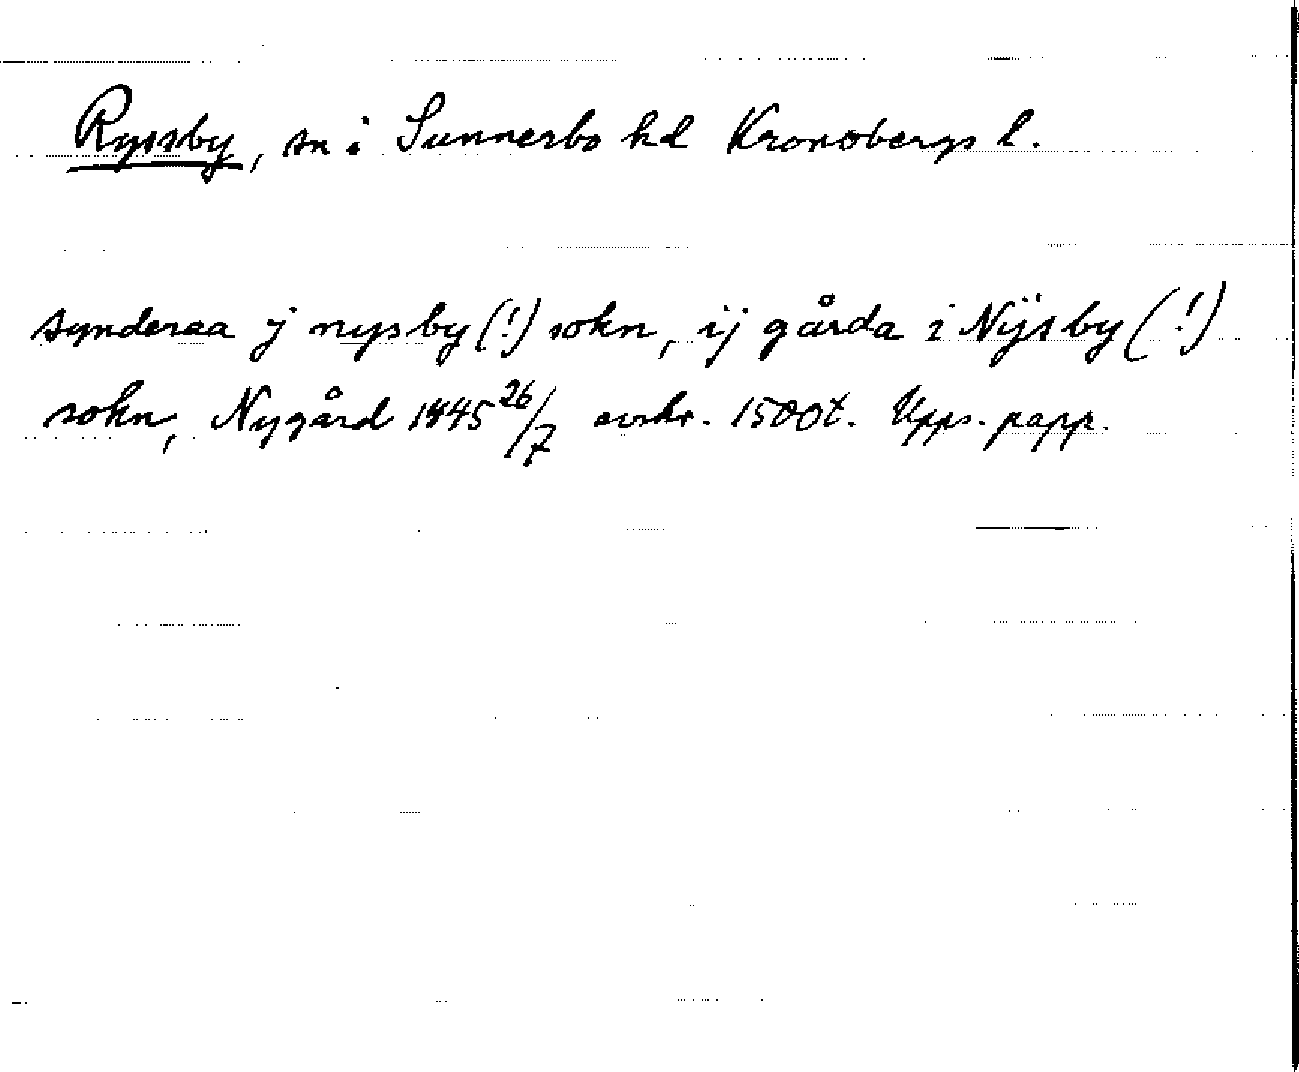 Ryssby, sn i Sunnerbo hd Kronobergs l.
synderaa j nysby (!) sokn, ij gårda i Nÿsby (!)
sokn, Nygård 1445 26/7 avskr. 1500t. Upps. papp.